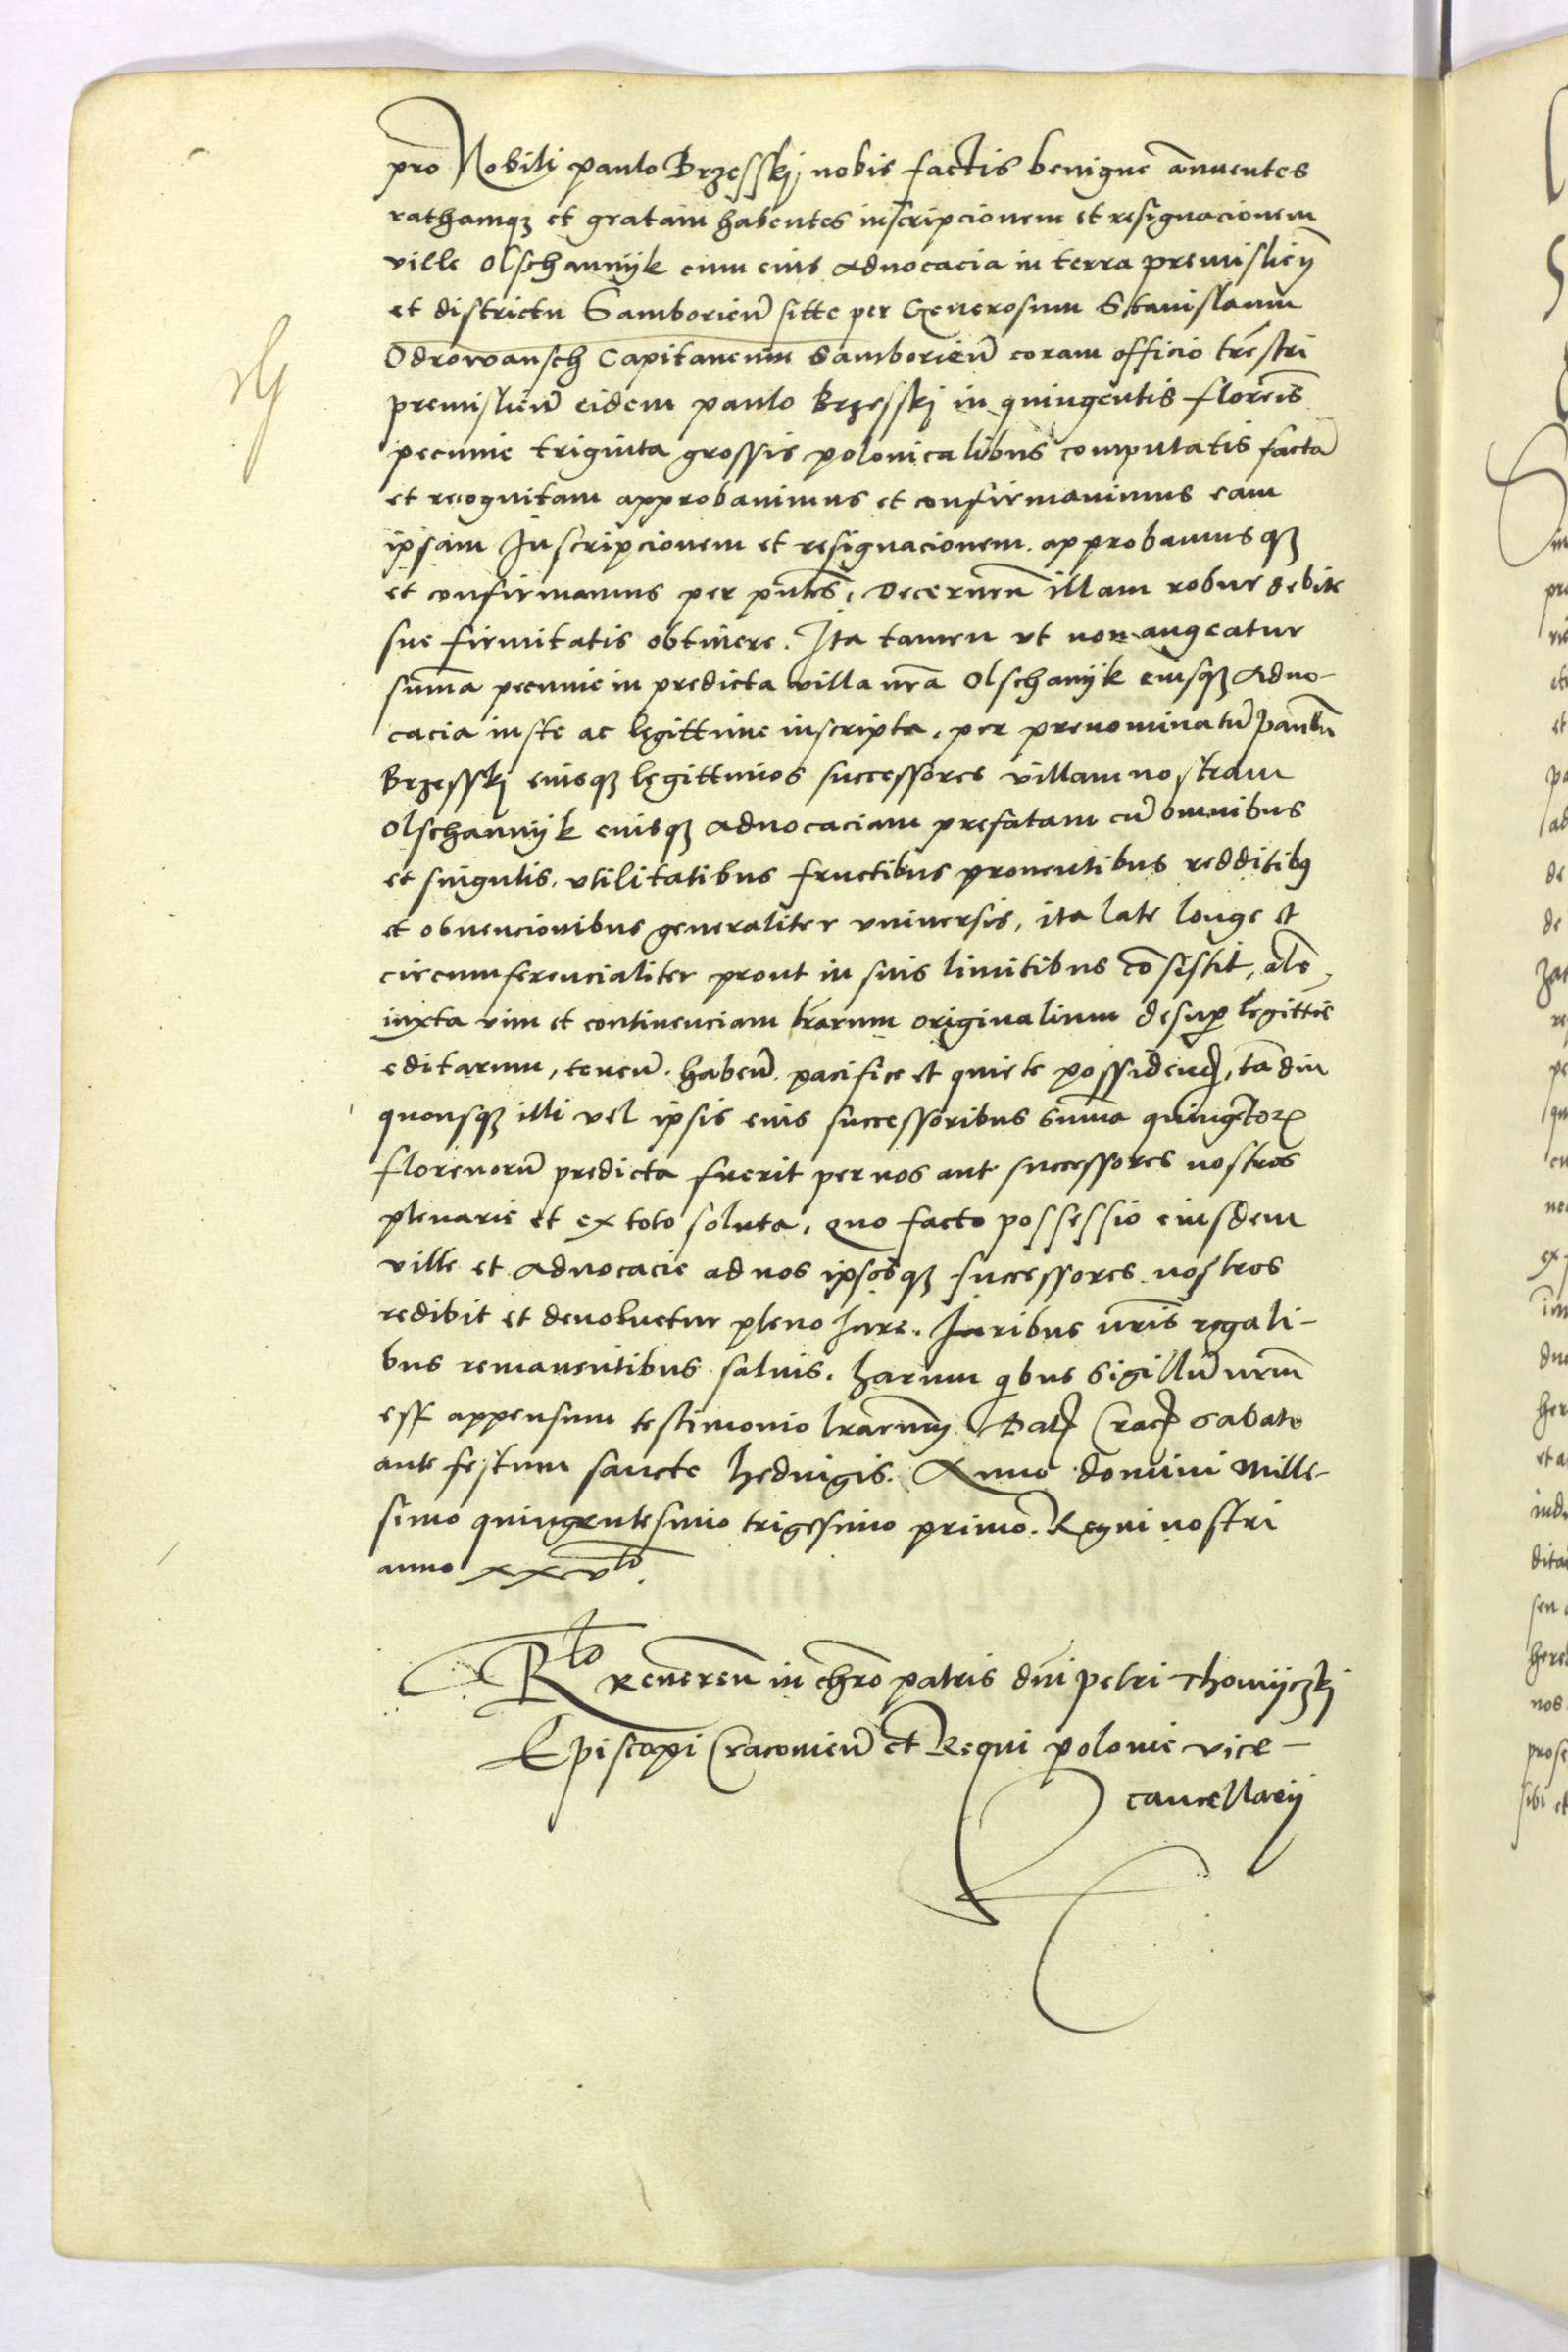 pro Nobili paulo Brzesskj nobis factis benigne annuentes
rathamqꝫ et gratam habentes inscripcionem et resignacionem
ville Olschannyk cum eius aduocacia in terra premislień
et districtu Samborień sitte per Generosum Stanislaum
Odrowansch Capitaneum Samborień coram officio trēstri
premislień eidem paulo Brzesskj in quingentis floreis̄
pecunie triginta grossis polonicalibus computatis factā
et recognitam approbauimus et confirmauimus eam
ipsam Inscripcionem et resignacionem. approbamusqꝫ
et confirmamus per pn̄tes, Decerneñ illam robur debite
sue firmitatis obtinere. Ita tamen vt non augeatur
sum̄a pecunie in predicta villa nr̄a Olschanyk eiusqꝫ aduo-
cacia iuste ac legittime inscripta, per prenominatū paulū
Brzesskj eiusqꝫ legittimos successores villam nostram
Olschannyk eiusqꝫ aduocaciam prefatam cū omnibus
et singulis, vtilitatibus fructibus prouentibus redditibꝰ
et obuencionibus generaliter vniuersis, ita late longe et
circumferencialiter prout in suis limitibus cōsistit,
iuxta vim et continenciam lr̄arum originalium desuꝑ legittie
editarum, teneñ. habeñ. pacifice et quiete possidenđ, tādiu
quousqꝫ illi vel ipsis eius successoribus sum̄a quingētoꝝ
florenorū predicta fuerit per nos aut successores nostros
plenarie et ex toto soluta, quo facto possessio eiusdem
ville et aduocacie ad nos ipsosqꝫ successores nostros
redibit et deuoluetur pleno Jure. Juribus nr̄is regali-
bus remanentibus saluis. harum qͥbus Sigillū nrm̄
est appensum testimonio lr̄arum. Dat̄ Crac̄ Sabato
ante festum sancte hedwigis. Anno domini Mille-
simo quingentesimo trigesimo primo. Regni nostri
anno xxvto.
Rlo Reuereñ in chro patris dn̄i petri Thomijczkj
Episcopi Cracouień et Regni polonie vice-
cancellarij